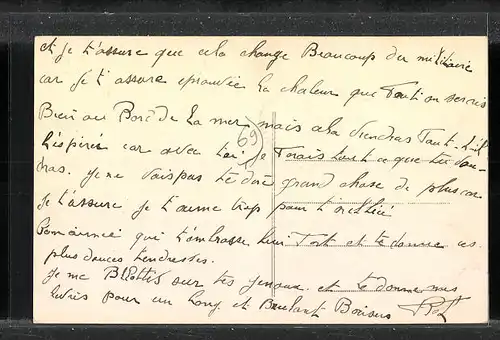 et je t'assure que cela change Beaucoup du militaire
car je t'assure eprouvée la chaleur que tout on serais
Bien au Bord de La mer mais cela viendras Tant
L'espérér car avec toi je ferais tout ce que tu vou-
dras. je ne vais pas te dire grand chose de plus car
je t'assure je t'aime trop pour t'oublier
Ton aimée qui t'embrasse bien Fort et te donne ces
plus douces tendresses.
je me Blottis sur tes genoux et te donne mes
lèvres pour un Long et Brulant Baisers
(69)